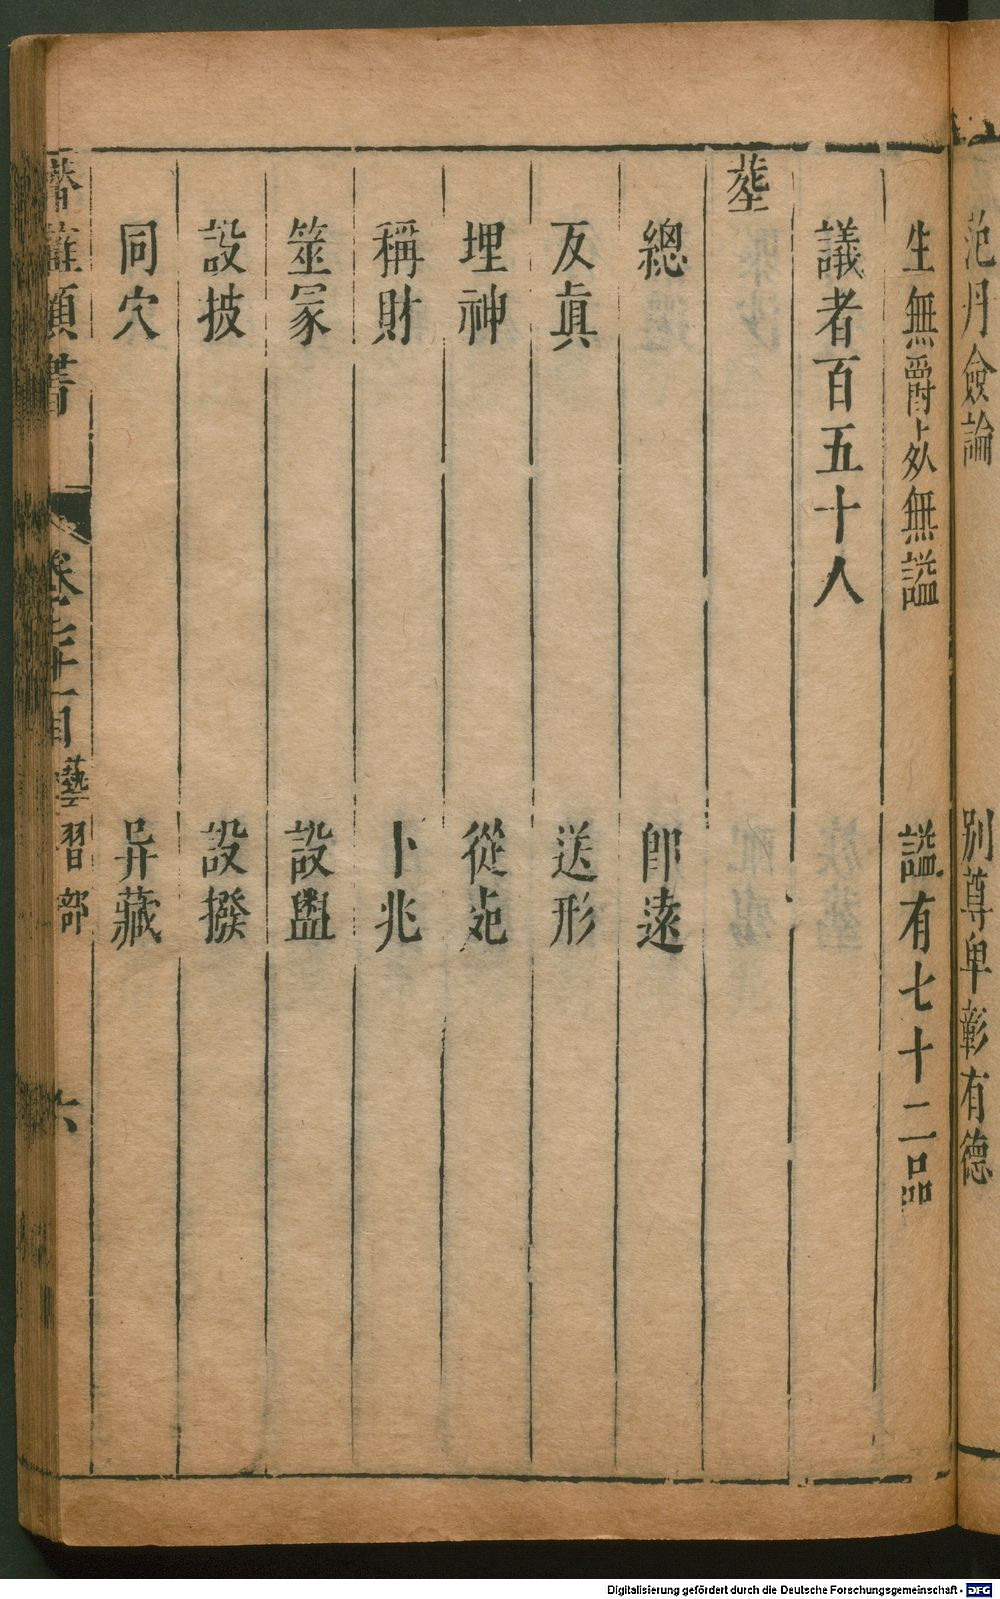 范丹僉論　別尊卑彰有德
生無爵卜死無謚　謚有七十二品
議者百五十人
塟
總　即遠
反眞　送形
埋神　從先
稱財　卜兆
筮冢　設輿
設披　設撥
同穴　异藏
潛確類書　卷七十一目　藝習部　六
Digitalisierung gefördert durch die Deutsche Forschungsgemeinschaft - DFG